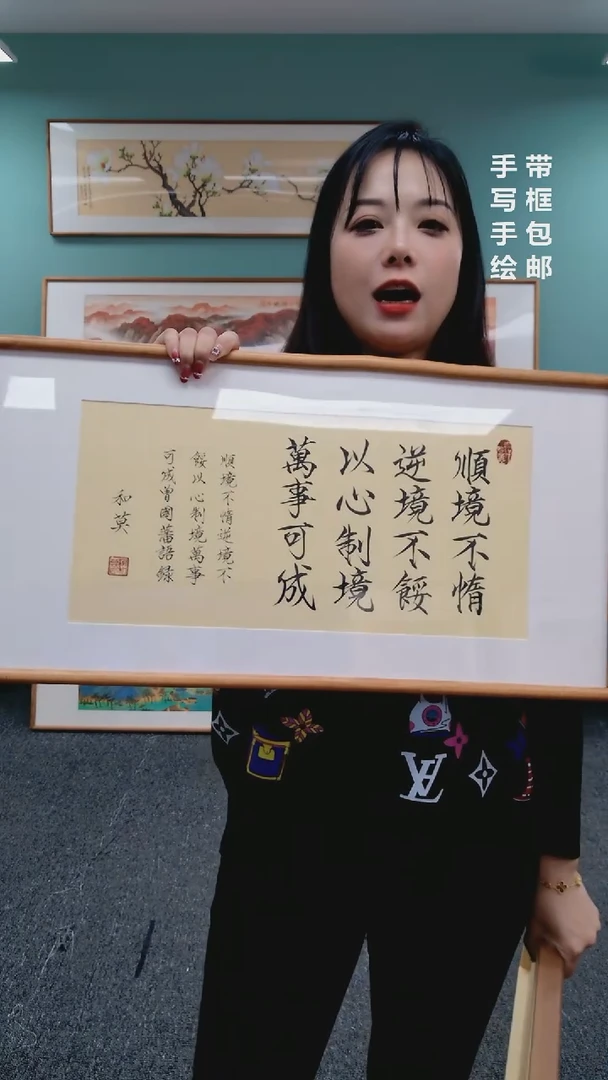 带框包邮
手写手绘
順境不惰
逆境不餒
以心制境
萬事可成
順境不惰逆境不
餒以心制境萬事
可成曾國藩語錄
和英